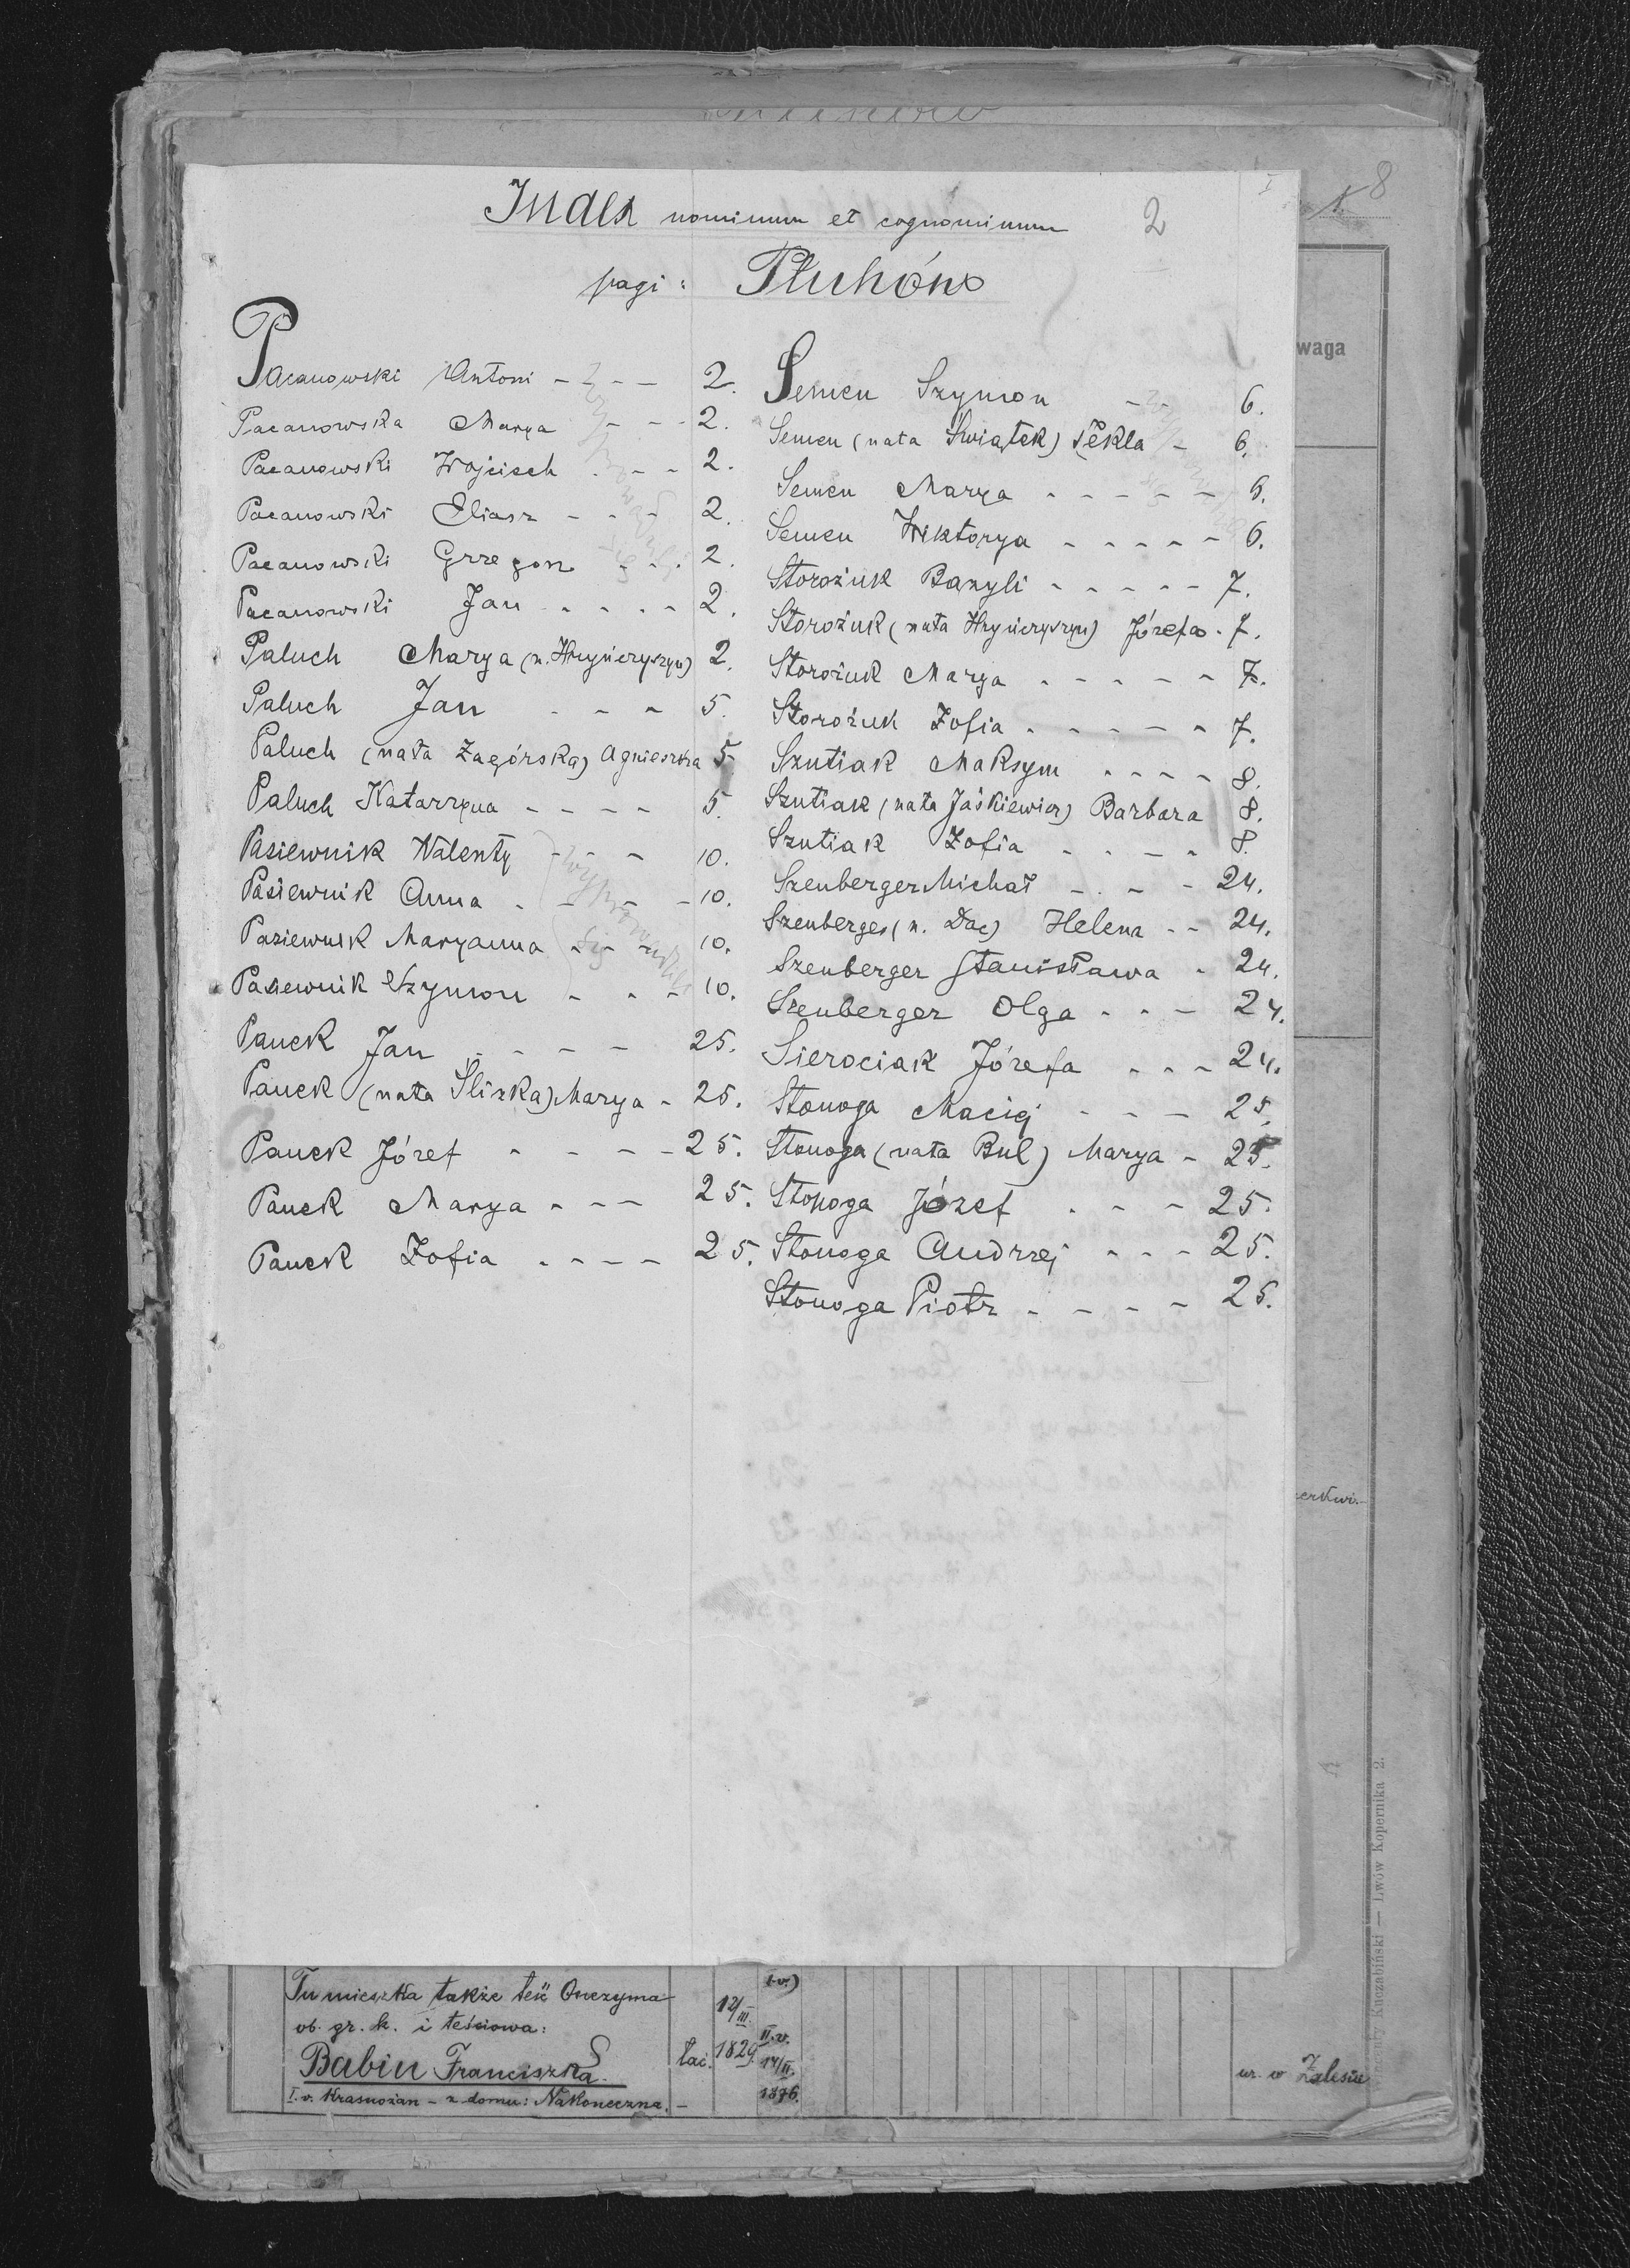 8
2
Index nominum et cognominum
pagi: Płuhów
waga
Pacanowski Antoni - - - 2.
Pacanowska Marya - - - 2.
Pacanowski Wojciech - - - 2.
Pacanowski Eliasz - - - 2.
Pacanowski Grzegorz - - - 2.
Pacanowski Jan - - - - 2.
Paluch Marya (n. Hryńczyszyn) 2.
Paluch Jan - - - 5.
Paluch (nata Zagórska) Agnieszka 5
Paluch Katarzyna - - - - 5.
Pasiewnik Walenty - - - 10.
Pasiewnik Anna - - - - 10.
Pasiewnik Maryanna - - - 10.
Pasiewnik Szymon - - - 10.
wyprowadzili się
Panek Jan - - - - 25.
Panek (nata Śliska) Marya - 25.
Panek Józef - - - - 25.
Panek Marya - - - 25.
Panek Zofia - - - - 25.
Semen Szymon - - 6.
Semen (nata Świątek) Tekla - 6.
Semen Marya - - - - - 6.
Semen Wiktorya - - - - - 6.
Storożuk Bazyli - - - - - 7.
Storożuk (nata Hryńczyszyn) Józefa - 7.
Storożuk Marya - - - - - 7.
Storożuk Zofia - - - - - 7.
Szutiak Maksym - - - - 8.
Szutiak (nata Jaśkiewicz) Barbara 8.
Szutiak Zofia - - - - 8.
Szenberger Michał - - - - 24.
Szenberger (n. Dac) Helena - - 24.
Szenberger Stanisława - 24.
Szenberger Olga - - - 24.
Sierociak Józefa - - - 24.
Stonoga Maciej - - - 25.
Stonoga (nata Bul) Marya - 25.
Stonoga Józef - - - 25.
Stonoga Andrzej - - - 25.
Stonoga Piotr - - - - 25.
Lwów Kopernika 2.
Tu mieszka także teść Onezyma
ob. gr. k. i teściowa:
Babin Franciszka
I. v. Krasnożan - z domu: Nakoneczna. -
łac.
12/III.
1829.
II. v.
14/II.
1876.
ur. w Zalesiu